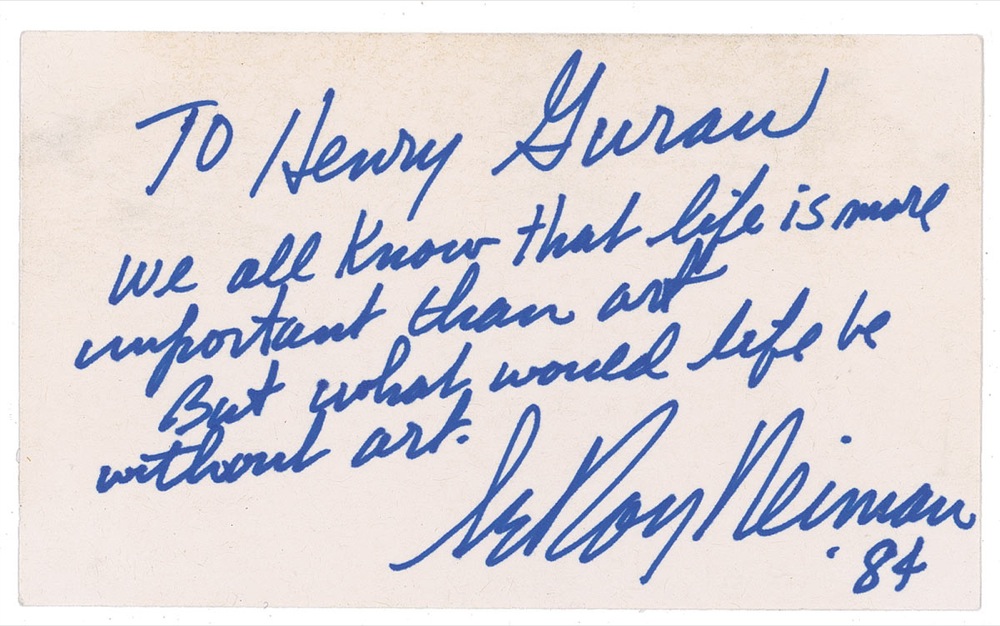 To Henry Guran
We all know that life is more
important than art
But what would life be
without art.
LeRoy Neiman
'84